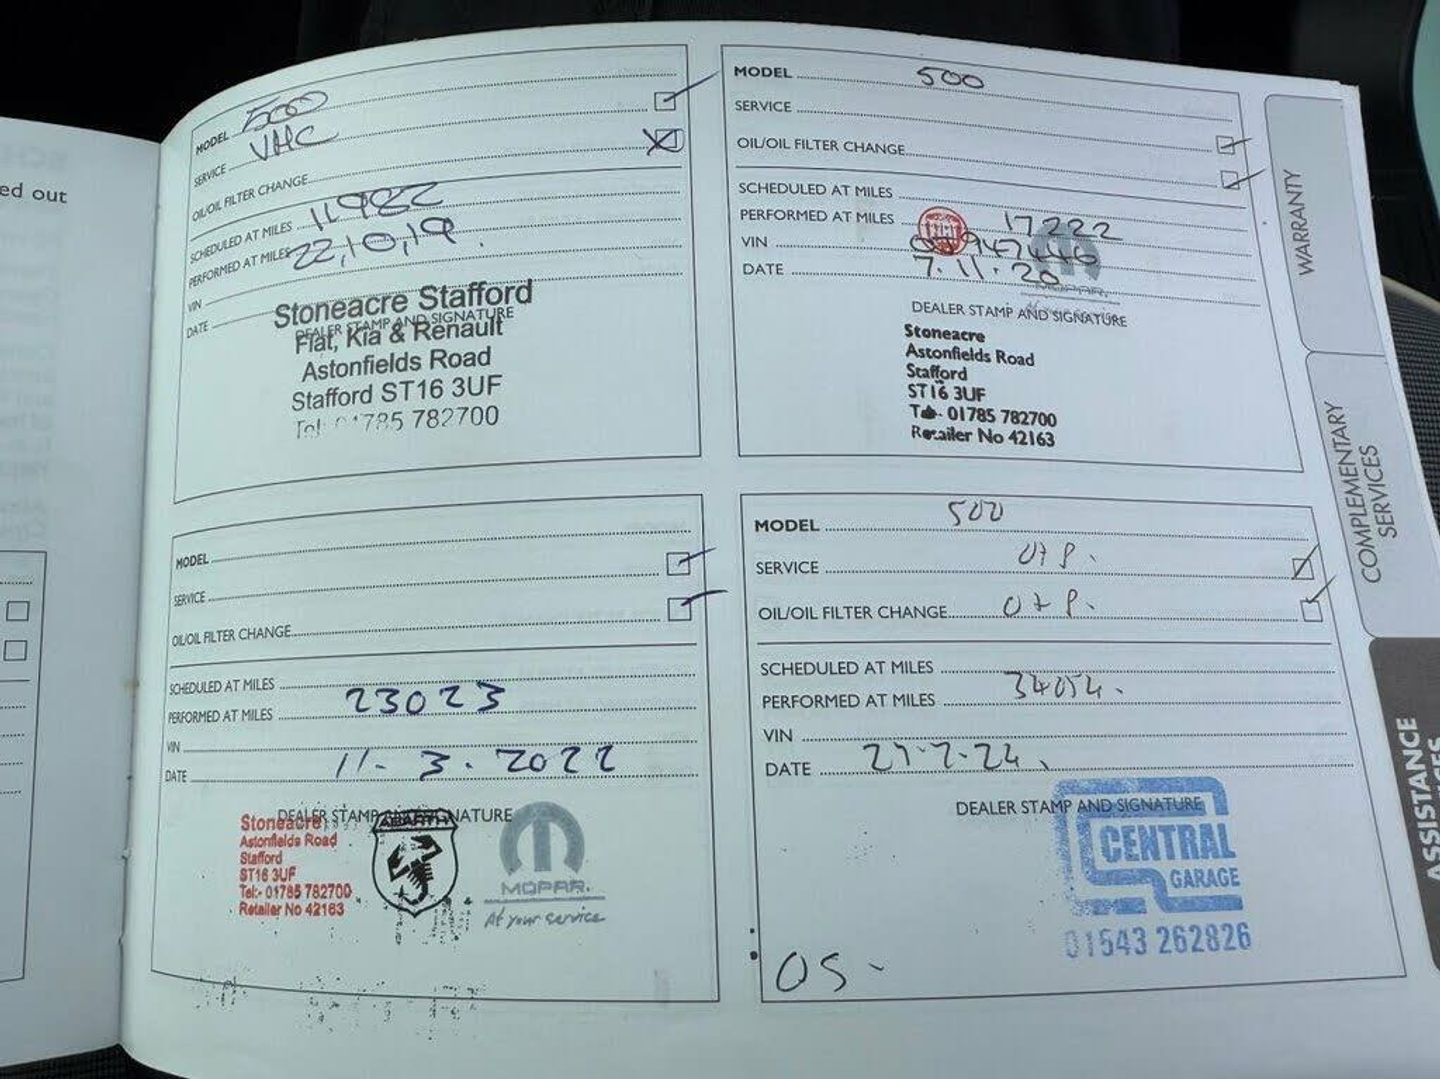 ed out
MODEL 500
SERVICE VHC
OIL/OIL FILTER CHANGE
SCHEDULED AT MILES 11982
PERFORMED AT MILES 22,10,19.
VIN
DATE
DEALER STAMP AND SIGNATURE
Stoneacre Stafford
Fiat, Kia & Renault
Astonfields Road
Stafford ST16 3UF
Tel: 01785 782700
MODEL 500
SERVICE
OIL/OIL FILTER CHANGE
SCHEDULED AT MILES
PERFORMED AT MILES 17222
VIN
DATE 7.11.20
MOPAR.
DEALER STAMP AND SIGNATURE
Stoneacre
Astonfields Road
Stafford
ST16 3UF
Tel- 01785 782700
Retailer No 42163
MODEL
SERVICE
OIL/OIL FILTER CHANGE
SCHEDULED AT MILES
PERFORMED AT MILES 23023
VIN
DATE 11-3.2022
DEALER STAMP AND SIGNATURE
Stoneacre
Astonfields Road
Stafford
ST16 3UF
Tel:- 01785 782700
Retailer No 42163
ABARTH
MOPAR.
At your service
MODEL 500
SERVICE
OIL/OIL FILTER CHANGE
SCHEDULED AT MILES
PERFORMED AT MILES 34054.
VIN
DATE
DEALER STAMP AND SIGNATURE
CENTRAL
GARAGE
01543 262826
OS-
WARRANTY
COMPLEMENTARY
SERVICES
ASSISTANCE